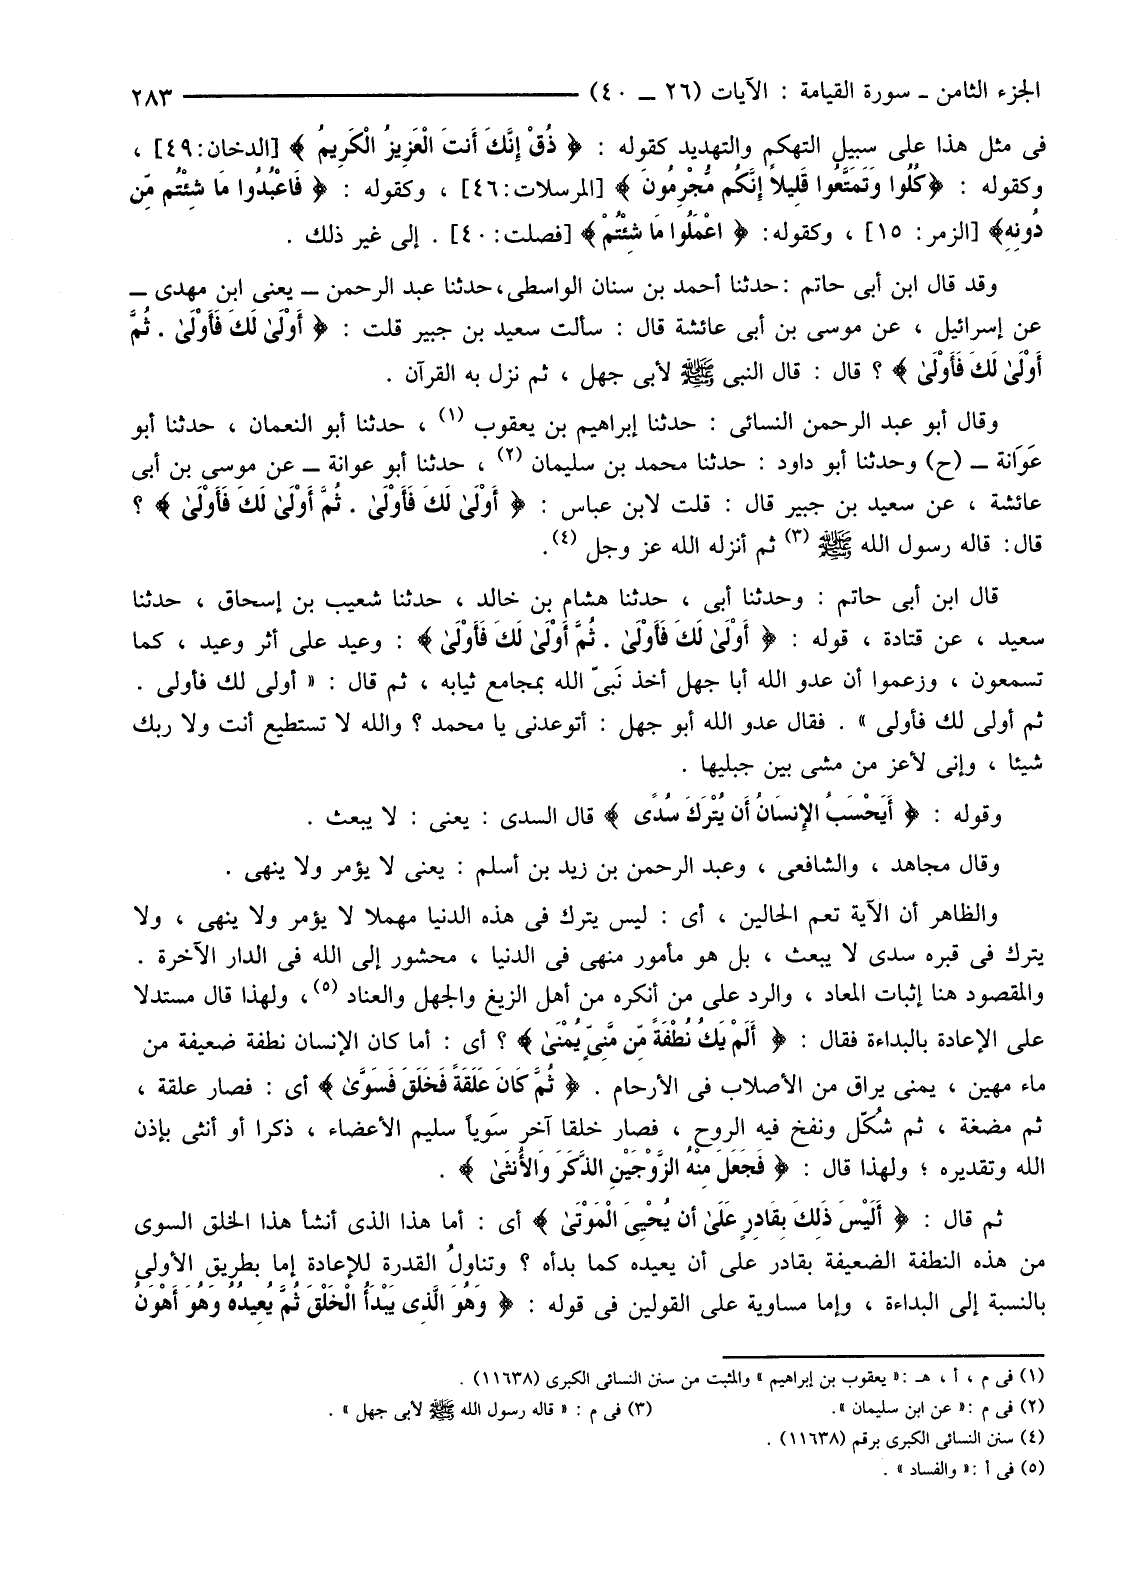 الجزء الثامن ـ سورة القيامة : الآيات (٢٦ ـ ٤٠) ٢٨٣
فى مثل هذا على سبيل التهكم والتهديد كقوله : ﴿ ذُقْ إِنَّكَ أَنتَ الْعَزِيزُ الْكَرِيمُ ﴾ [الدخان:٤٩] ،
وكقوله : ﴿كُلُوا وَتَمَتَّعُوا قَلِيلاً إِنَّكُم مُّجْرِمُونَ ﴾ [المرسلات:٤٦] ، وكقوله : ﴿ فَاعْبُدُوا مَا شِئْتُم مِّن
دُونِهِ﴾ [الزمر: ١٥] ، وكقوله: ﴿ اعْمَلُوا مَا شِئْتُمْ﴾ [فصلت:٤٠] . إلى غير ذلك .
وقد قال ابن أبى حاتم :حدثنا أحمد بن سنان الواسطى،حدثنا عبد الرحمن ـ يعنى ابن مهدى ـ
عن إسرائيل ، عن موسى بن أبى عائشة قال : سألت سعيد بن جبير قلت : ﴿ أَوْلَىٰ لَكَ فَأَوْلَىٰ . ثُمَّ
أَوْلَىٰ لَكَ فَأَوْلَىٰ ﴾ ؟ قال : قال النبى ﷺ لأبى جهل ، ثم نزل به القرآن .
وقال أبو عبد الرحمن النسائى : حدثنا إبراهيم بن يعقوب (١) ، حدثنا أبو النعمان ، حدثنا أبو
عَوَانة ـ (ح) وحدثنا أبو داود : حدثنا محمد بن سليمان (٢) ، حدثنا أبو عوانة ـ عن موسى بن أبى
عائشة ، عن سعيد بن جبير قال : قلت لابن عباس : ﴿ أَوْلَىٰ لَكَ فَأَوْلَىٰ . ثُمَّ أَوْلَىٰ لَكَ فَأَوْلَىٰ ﴾ ؟
قال: قاله رسول الله ﷺ (٣) ثم أنزله الله عز وجل (٤).
قال ابن أبى حاتم : وحدثنا أبى ، حدثنا هشام بن خالد ، حدثنا شعيب بن إسحاق ، حدثنا
سعيد ، عن قتادة ، قوله : ﴿ أَوْلَىٰ لَكَ فَأَوْلَىٰ . ثُمَّ أَوْلَىٰ لَكَ فَأَوْلَىٰ ﴾ : وعيد على أثر وعيد ، كما
تسمعون ، وزعموا أن عدو الله أبا جهل أخذ نَبىّ الله بمجامع ثيابه ، ثم قال : « أولى لك فأولى .
ثم أولى لك فأولى » . فقال عدو الله أبو جهل : أتوعدنى يا محمد ؟ والله لا تستطيع أنت ولا ربك
شيئا ، وإنى لأعز من مشى بين جبليها .
وقوله : ﴿ أَيَحْسَبُ الإِنسَانُ أَن يُتْرَكَ سُدًى ﴾ قال السدى : يعنى : لا يبعث .
وقال مجاهد ، والشافعى ، وعبد الرحمن بن زيد بن أسلم : يعنى لا يؤمر ولا ينهى .
والظاهر أن الآية تعم الحالين ، أى : ليس يترك فى هذه الدنيا مهملا لا يؤمر ولا ينهى ، ولا
يترك فى قبره سدى لا يبعث ، بل هو مأمور منهى فى الدنيا ، محشور إلى الله فى الدار الآخرة .
والمقصود هنا إثبات المعاد ، والرد على من أنكره من أهل الزيغ والجهل والعناد (٥)، ولهذا قال مستدلا
على الإعادة بالبداءة فقال : ﴿ أَلَمْ يَكُ نُطْفَةً مِّن مَّنِيٍّ يُمْنَىٰ ﴾ ؟ أى : أما كان الإنسان نطفة ضعيفة من
ماء مهين ، يمنى يراق من الأصلاب فى الأرحام . ﴿ ثُمَّ كَانَ عَلَقَةً فَخَلَقَ فَسَوَّىٰ ﴾ أى : فصار علقة ،
ثم مضغة ، ثم شُكّل ونفخ فيه الروح ، فصار خلقا آخر سَوياً سليم الأعضاء ، ذكرا أو أنثى بإذن
الله وتقديره ؛ ولهذا قال : ﴿ فَجَعَلَ مِنْهُ الزَّوْجَيْنِ الذَّكَرَ وَالأُنثَىٰ ﴾ .
ثم قال : ﴿ أَلَيْسَ ذَلِكَ بِقَادِرٍ عَلَىٰ أَن يُحْيِيَ الْمَوْتَىٰ ﴾ أى : أما هذا الذى أنشأ هذا الخلق السوى
من هذه النطفة الضعيفة بقادر على أن يعيده كما بدأه ؟ وتناولُ القدرة للإعادة إما بطريق الأولى
بالنسبة إلى البداءة ، وإما مساوية على القولين فى قوله : ﴿ وَهُوَ الَّذِى يَبْدَأُ الْخَلْقَ ثُمَّ يُعِيدُهُ وَهُوَ أَهْوَنُ
(١) فى م ، أ ، هـ :« يعقوب بن إبراهيم » والمثبت من سنن النسائى الكبرى (١١٦٣٨) .
(٢) فى م :« عن ابن سليمان ». (٣) فى م : « قاله رسول الله ﷺ لأبى جهل » .
(٤) سنن النسائى الكبرى برقم (١١٦٣٨) .
(٥) فى أ :« والفساد » .